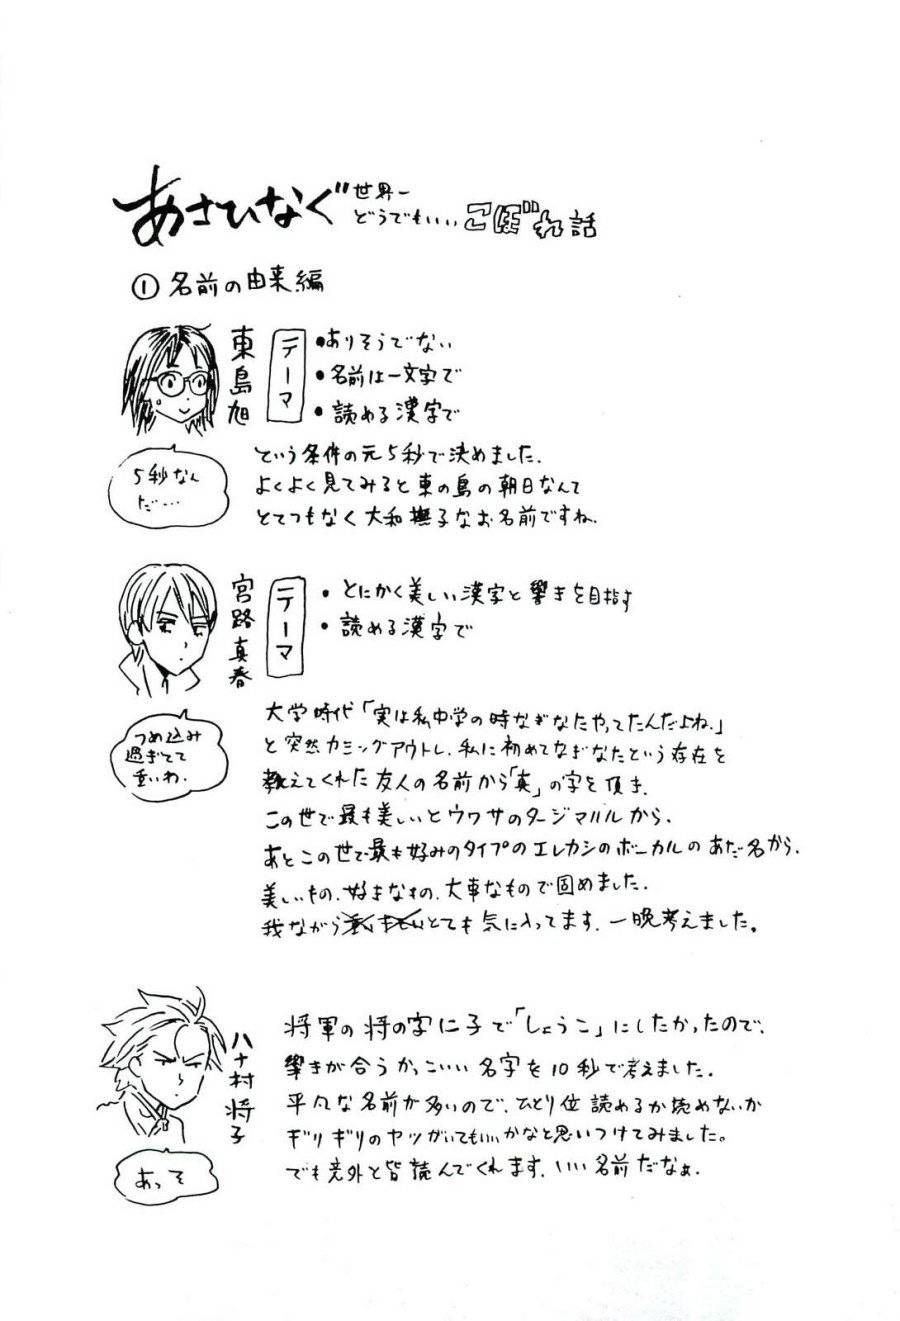 あさひなぐ 世界一
どうでもいい こぼれ話
① 名前の由来編
東島旭
テーマ
・ありそうでない
・名前は一文字で
・読める漢字で
という条件の元5秒で決めました.
よくよく見てみると東の島の朝日なんて
とてつもなく大和撫子なお名前ですね.
5秒なん
だ…
宮路真春
テーマ
・とにかく美しい漢字と響きを目指す
・読める漢字で
大学時代「実は私中学の時なぎなたやってたんだよね.」
と突然カミングアウトし、私に初めてなぎなたという存在を
教えてくれた友人の名前から「真」の字を頂き.
この世で最も美しいとウワサのタージマハルから.
あとこの世で最も好みのタイプのエレカシのボーカルのあだ名から.
美しいもの、好きなもの、大事なもので固めました.
我ながらとても気に入ってます. 一晩考えました。
つめ込み
過ぎてて
重いわ.
八十村将子
将軍の将の字に子で「しょうこ」にしたかったので、
響きが合うかっこいい名字を10秒で考えました.
平凡な名前が多いので、ひとり位読めるか読めないか
ギリギリのヤツがいてもいいかなと思いつけてみました。
でも意外と皆読んでくれます. いい名前だなぁ.
あっそ